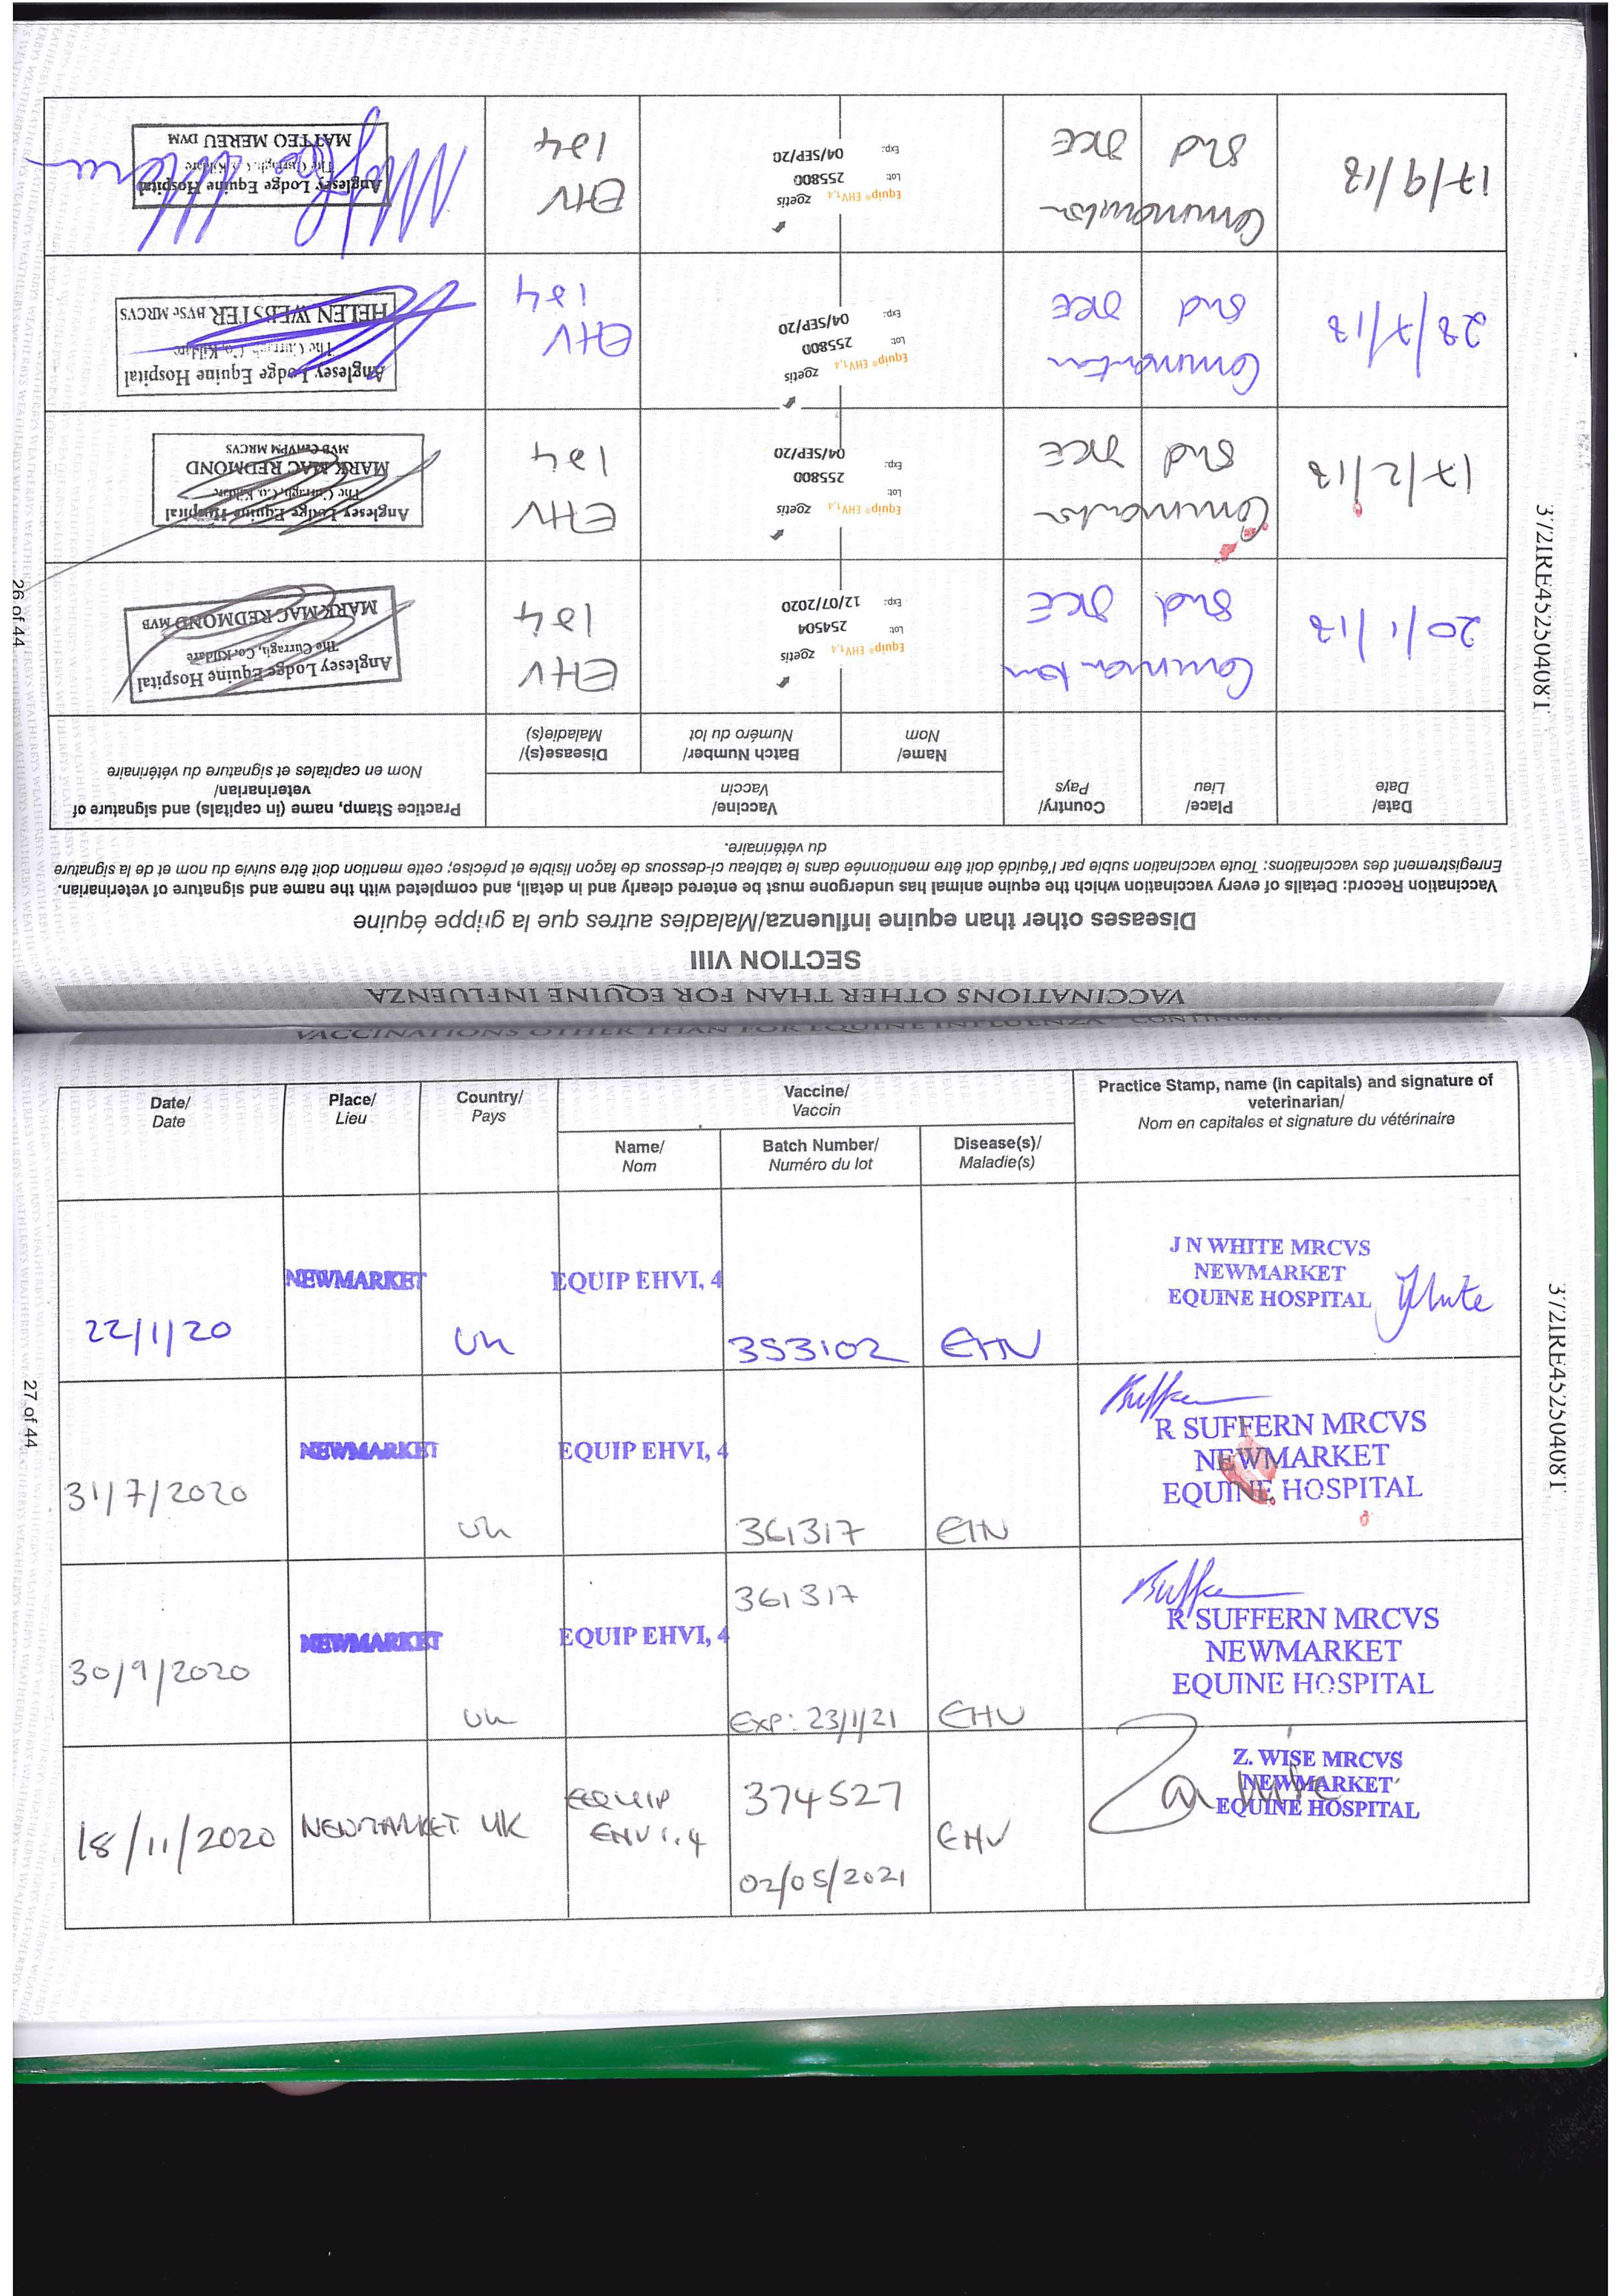 VACCINATIONS OTHER THAN FOR EQUINE INFLUENZA
SECTION VIII
Diseases other than equine influenza/Maladies autres que la grippe équine
Vaccination Record: Details of every vaccination which the equine animal has undergone must be entered clearly and in detail, and completed with the name and signature of veterinarian.
Enregistrement des vaccinations: Toute vaccination subie par l'équidé doit être mentionnée dans le tableau ci-dessous de façon lisible et précise; cette mention doit être suivie du nom et de la signature
du vétérinaire.
Date/
Date
Place/
Lieu
Country/
Pays
Vaccine/
Vaccin
Name/
Nom
Batch Number/
Numéro du lot
Disease(s)/
Maladie(s)
Practice Stamp, name (in capitals) and signature of
veterinarian/
Nom en capitales et signature du vétérinaire
20/1/18
Commonstown
Stud
IRE
Equip® EHV1,4
zoetis
Lot:
254504
Exp:
12/07/2020
EHV
1&4
Anglesey Lodge Equine Hospital
The Curragh, Co. Kildare
MARK MAC REDMOND MVB
17/2/18
Commonstown
Stud
IRE
Equip® EHV1,4
zoetis
Lot:
255800
Exp:
04/SEP/20
EHV
1&4
Anglesey Lodge Equine Hospital
The Curragh, Co. Kildare
MARK MAC REDMOND
MVB CertVPM MRCVS
28/7/18
Commonstown
Stud
IRE
Equip® EHV1,4
zoetis
Lot:
255800
Exp:
04/SEP/20
EHV
1&4
Anglesey Lodge Equine Hospital
The Curragh, Co. Kildare
HELEN WEBSTER BVSc MRCVS
17/9/18
Commonstown
Stud
IRE
Equip® EHV1,4
zoetis
Lot
255800
Exp:
04/SEP/20
EHV
1&4
Anglesey Lodge Equine Hospital
The Curragh, Co. Kildare
MATTEO MEREU DVM
372IRE452504081
26 of 44
VACCINATIONS OTHER THAN FOR EQUINE INFLUENZA - CONTINUED
Date/
Date
Place/
Lieu
Country/
Pays
Vaccine/
Vaccin
Name/
Nom
Batch Number/
Numéro du lot
Disease(s)/
Maladie(s)
Practice Stamp, name (in capitals) and signature of
veterinarian/
Nom en capitales et signature du vétérinaire
22/1/20
NEWMARKET
UK
EQUIP EHVI, 4
353102
EHV
J N WHITE MRCVS
NEWMARKET
EQUINE HOSPITAL
31/7/2020
NEWMARKET
UK
EQUIP EHVI, 4
361317
EHV
R SUFFERN MRCVS
NEWMARKET
EQUINE HOSPITAL
30/9/2020
NEWMARKET
UK
EQUIP EHVI, 4
361317
Exp: 23/1/21
EHV
R SUFFERN MRCVS
NEWMARKET
EQUINE HOSPITAL
18/11/2020
NEWMARKET
UK
EQUIP
EHV 1,4
374527
02/05/2021
EHV
Z. WISE MRCVS
NEWMARKET
EQUINE HOSPITAL
372IRE452504081
27 of 44